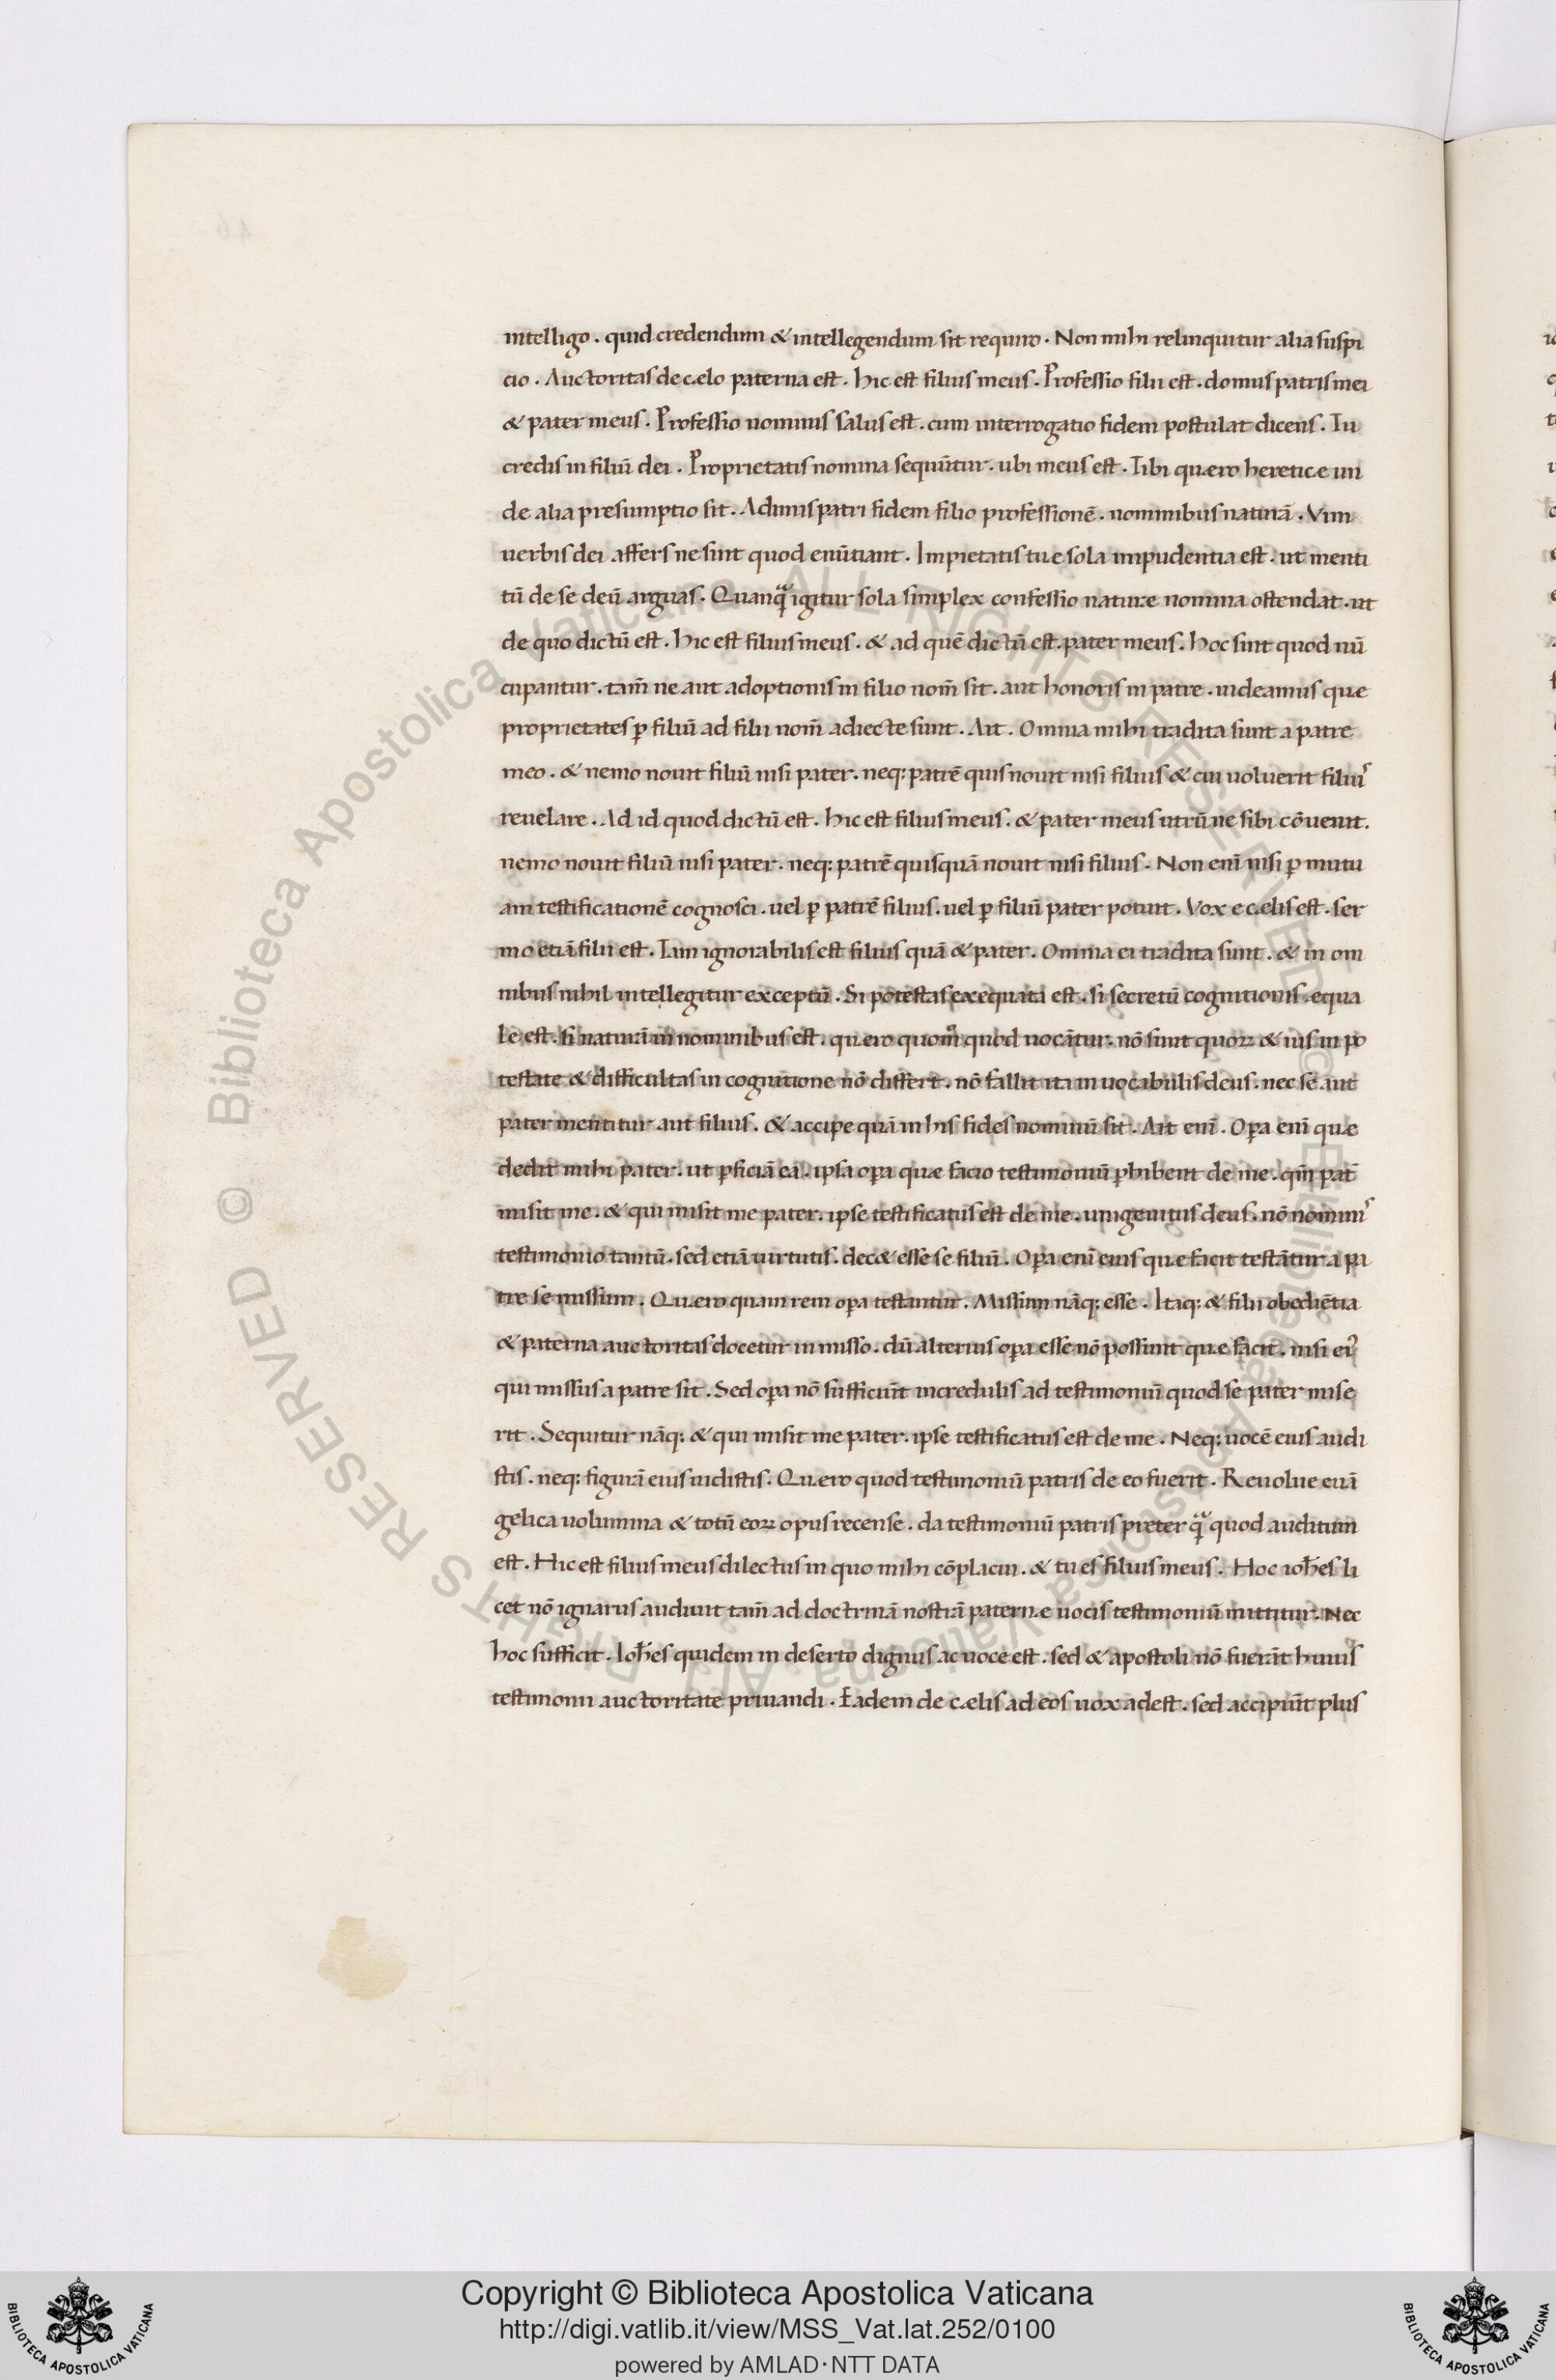 intelligo. quid credendum & intellegendum sit requiro. Non mihi relinquitur alia suspi
cio. Auctoritas de cælo paterna est. hic est filius meus. Professio filii est. domus patris mei
& pater meus. Professio nominis salus est. cum interrogatio fidem postulat dicens. Tu
credis in filiū dei. Proprietatis nomina sequūtur. ubi meus est. Tibi quæro heretice un
de alia presumptio sit. Adimis patri fidem filio professionē. nominibus naturā. Vim
uerbis dei affers ne sint quod enūtiant. Impietatis tuæ sola impudentia est. ut menti
tū de se deū arguas. Quanq̄ igitur sola simplex confessio naturæ nomina ostendat. ut
de quo dictū est. hic est filius meus. & ad quē dictū est. pater meus. hoc sint quod nū
cupantur. tam̄ ne aut adoptionis in filio nom̄ sit. aut honoris in patre. uideamus quæ
proprietates ꝑ filiū ad filii nom̄ adiecte sunt. Ait. Omnia mihi tradita sunt a patre
meo. & nemo nouit filiū nisi pater. neq: patrē quis nouit nisi filius & cui uoluerit filiuˢ
reuelare. Ad id quod dictū est. hic est filius meus. & pater meus utrū ne sibi cōuenit.
nemo nouit filiū nisi pater. neq: patrē quisquā nouit nisi filius. Non enī nisi ꝑ mutu
am testificationē cognosci. uel ꝑ patrē filius. uel ꝑ filiū pater potuit. Vox e cælis est. ser
mo etiā filii est. Tam ignorabilis est filius quā & pater. Omnia ei tradita sunt. & in om
nibus nihil intellegitur exceptū. Si potestas exequata est. si secretū cognitionis equa
le est. si naturā in nominibus est. quæro quom̄ quod uocātur. nō sunt quoꝝ & uis in po
testate & difficultas in cognitione nō differt. nō fallit ita in uocabulis deus. nec se aut
pater mentitur aut filius. & accipe quā in his fides nominū sit. Ait enī. Oꝑa enī quæ
dedit mihi pater. ut ꝑficiā ea. ipsa oꝑa quæ facio testimoniū ꝑhibent de me. qm̄ pat̄
misit me. & qui misit me pater. ipse testificatus est de me. unigenitus deus. nō nominiˢ
testimonio tantū. sed etiā uirtutis. doc& esse se filiū. Oꝑa enī eius quæ facit testātur a pa
tre se missum. Quæro quam rem oꝑa testantur. Missum nāq: esse. Itaq: & filii obediētia
& paterna auctoritas docetur in misso. dū alterius oꝑa esse nō possunt quæ facit. nisi eiꝰ
qui missus a patre sit. Sed oꝑa nō sufficiūt incredulis ad testimoniū quod se pater mise
rit. Sequitur nāq: & qui misit me pater. ipse testificatus est de me. Neq: uocē eius audi
stis. neq: figurā eius uidistis. Quæro quod testimoniū patris de eo fuerit. Reuolue euā
gelica uolumina & totū eoꝝ opus recense. da testimoniū patris preter q̄ quod auditum
est. Hic est filius meus dilectus in quo mihi cōplacui. & tu es filius meus. Hoc ioh̄es li
cet nō ignarus audiuit tam̄ ad doctrinā nostrā paternæ uocis testimoniū mittitur. Nec
hoc sufficit. Ioh̄es quidem in deserto dignus ac uoce est. sed & apostoli nō fuerāt huius
testimonii auctoritate priuandi. Eadem de cælis ad eos uox adest. sed accipiūt plus
© Biblioteca Apostolica Vaticana ALL RIGHTS RESERVED
© Biblioteca Apostolica Vaticana ALL RIGHTS RESERVED
Copyright © Biblioteca Apostolica Vaticana
http://digi.vatlib.it/view/MSS_Vat.lat.252/0100
powered by AMLAD·NTT DATA
BIBLIOTECA APOSTOLICA VATICANA
BIBLIOTECA APOSTOLICA VATICANA